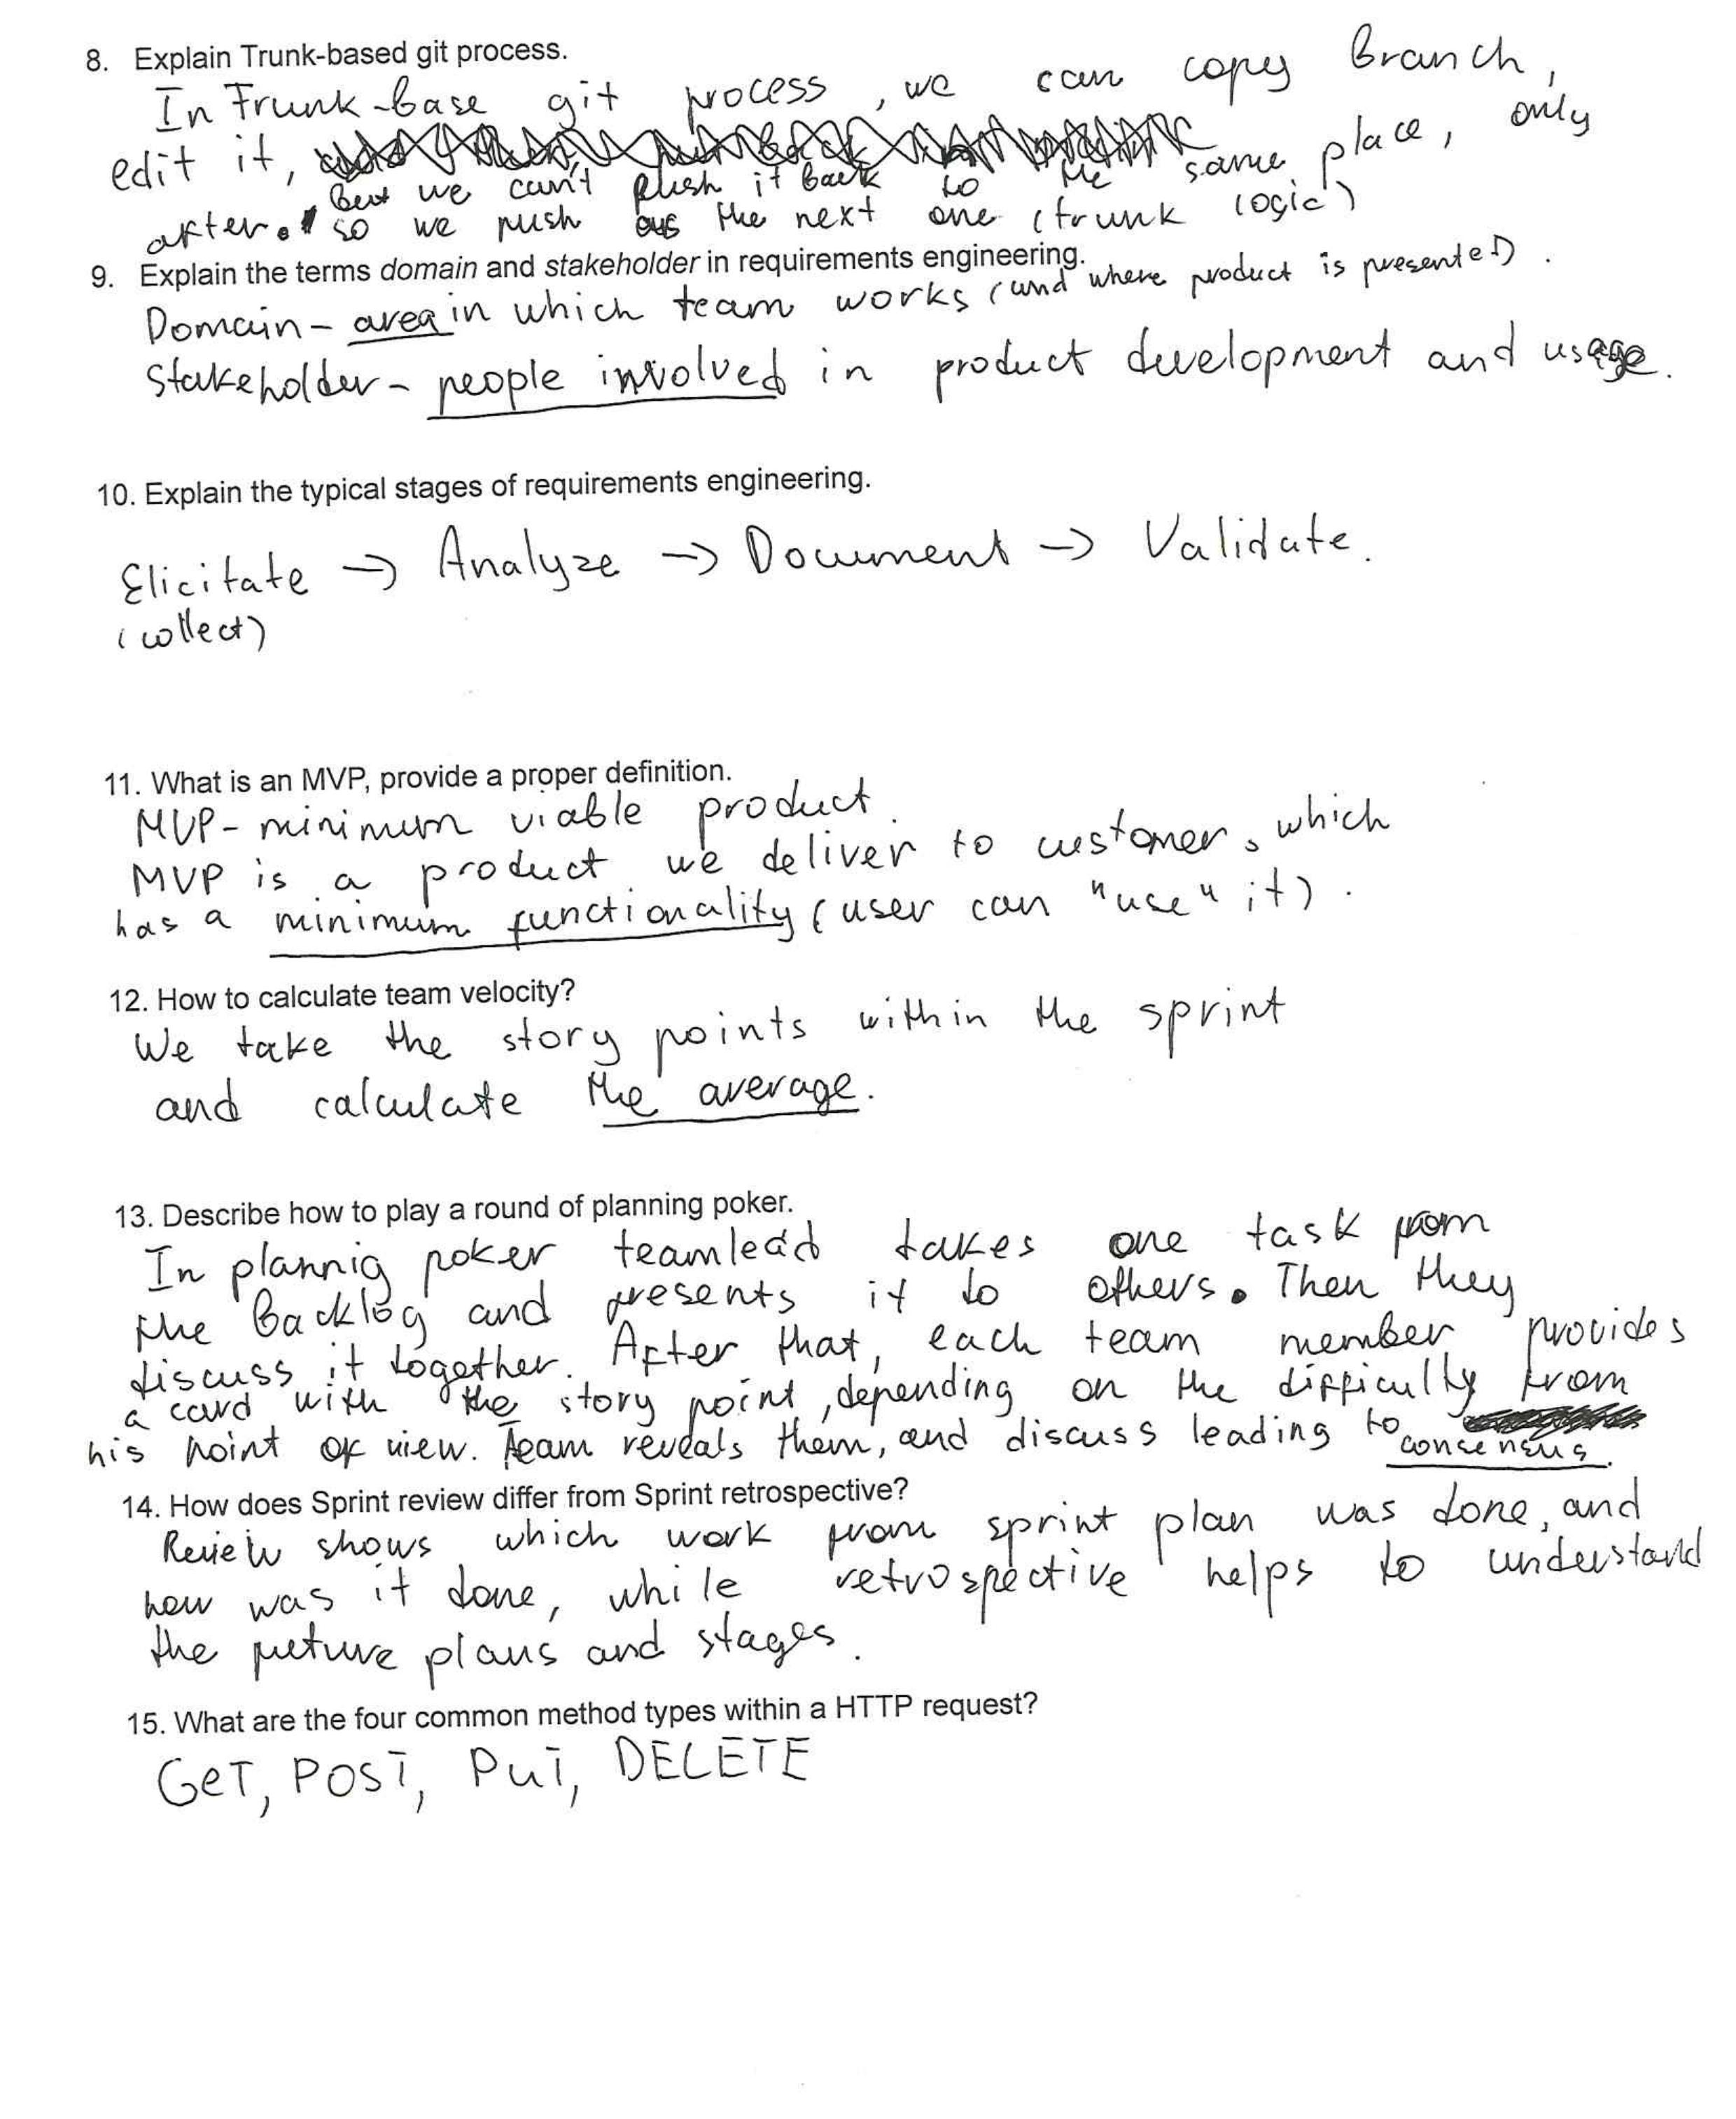 8. Explain Trunk-based git process.
In Trunk-base git process, we can copy branch,
edit it,
but we can't push it back to the same place, only
after. so we push as the next one (trunk logic)
9. Explain the terms domain and stakeholder in requirements engineering.
Domain - area in which team works (and where product is presented).
Stakeholder - people involved in product development and usage.
10. Explain the typical stages of requirements engineering.
Elicitate → Analyze → Document → Validate.
(collect)
11. What is an MVP, provide a proper definition.
MVP - minimum viable product.
MVP is a product we deliver to customer, which
has a minimum functionality (user can "use" it).
12. How to calculate team velocity?
We take the story points within the sprint
and calculate the average.
13. Describe how to play a round of planning poker.
In plannig poker teamlead takes one task from
the backlog and presents it to others. Then they
discuss it together. After that, each team member provides
a card with the story point, depending on the difficulty from
his point of view. Team reveals them, and discuss leading to consensus.
14. How does Sprint review differ from Sprint retrospective?
Review shows which work from sprint plan was done, and
how was it done, while retrospective helps to understand
the future plans and stages.
15. What are the four common method types within a HTTP request?
GeT, POST, PuT, DELETE